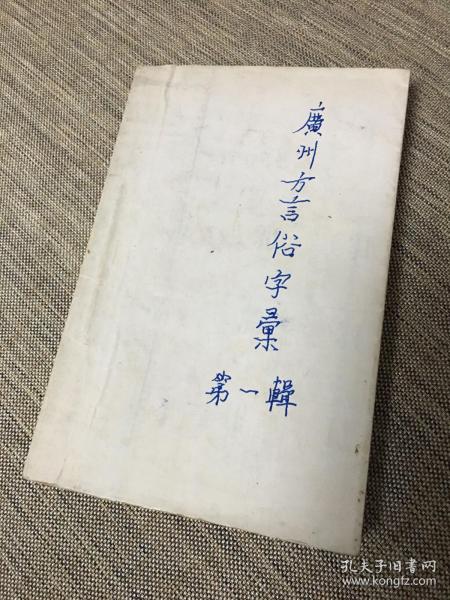 廣州方言俗字彙
第一輯
孔夫子旧书网
www.kongfz.com